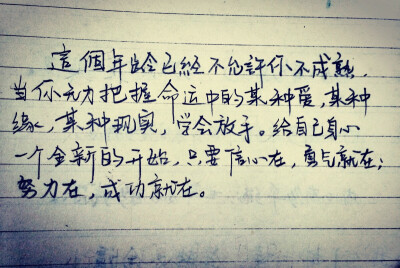 這個年齡已經不允許你不成熟,
当你无力把握命运中的某种爱,某种
缘,某种现实,学会放手。给自己
一个全新的开始,只要信心在,勇气就在;
努力在,成功就在。